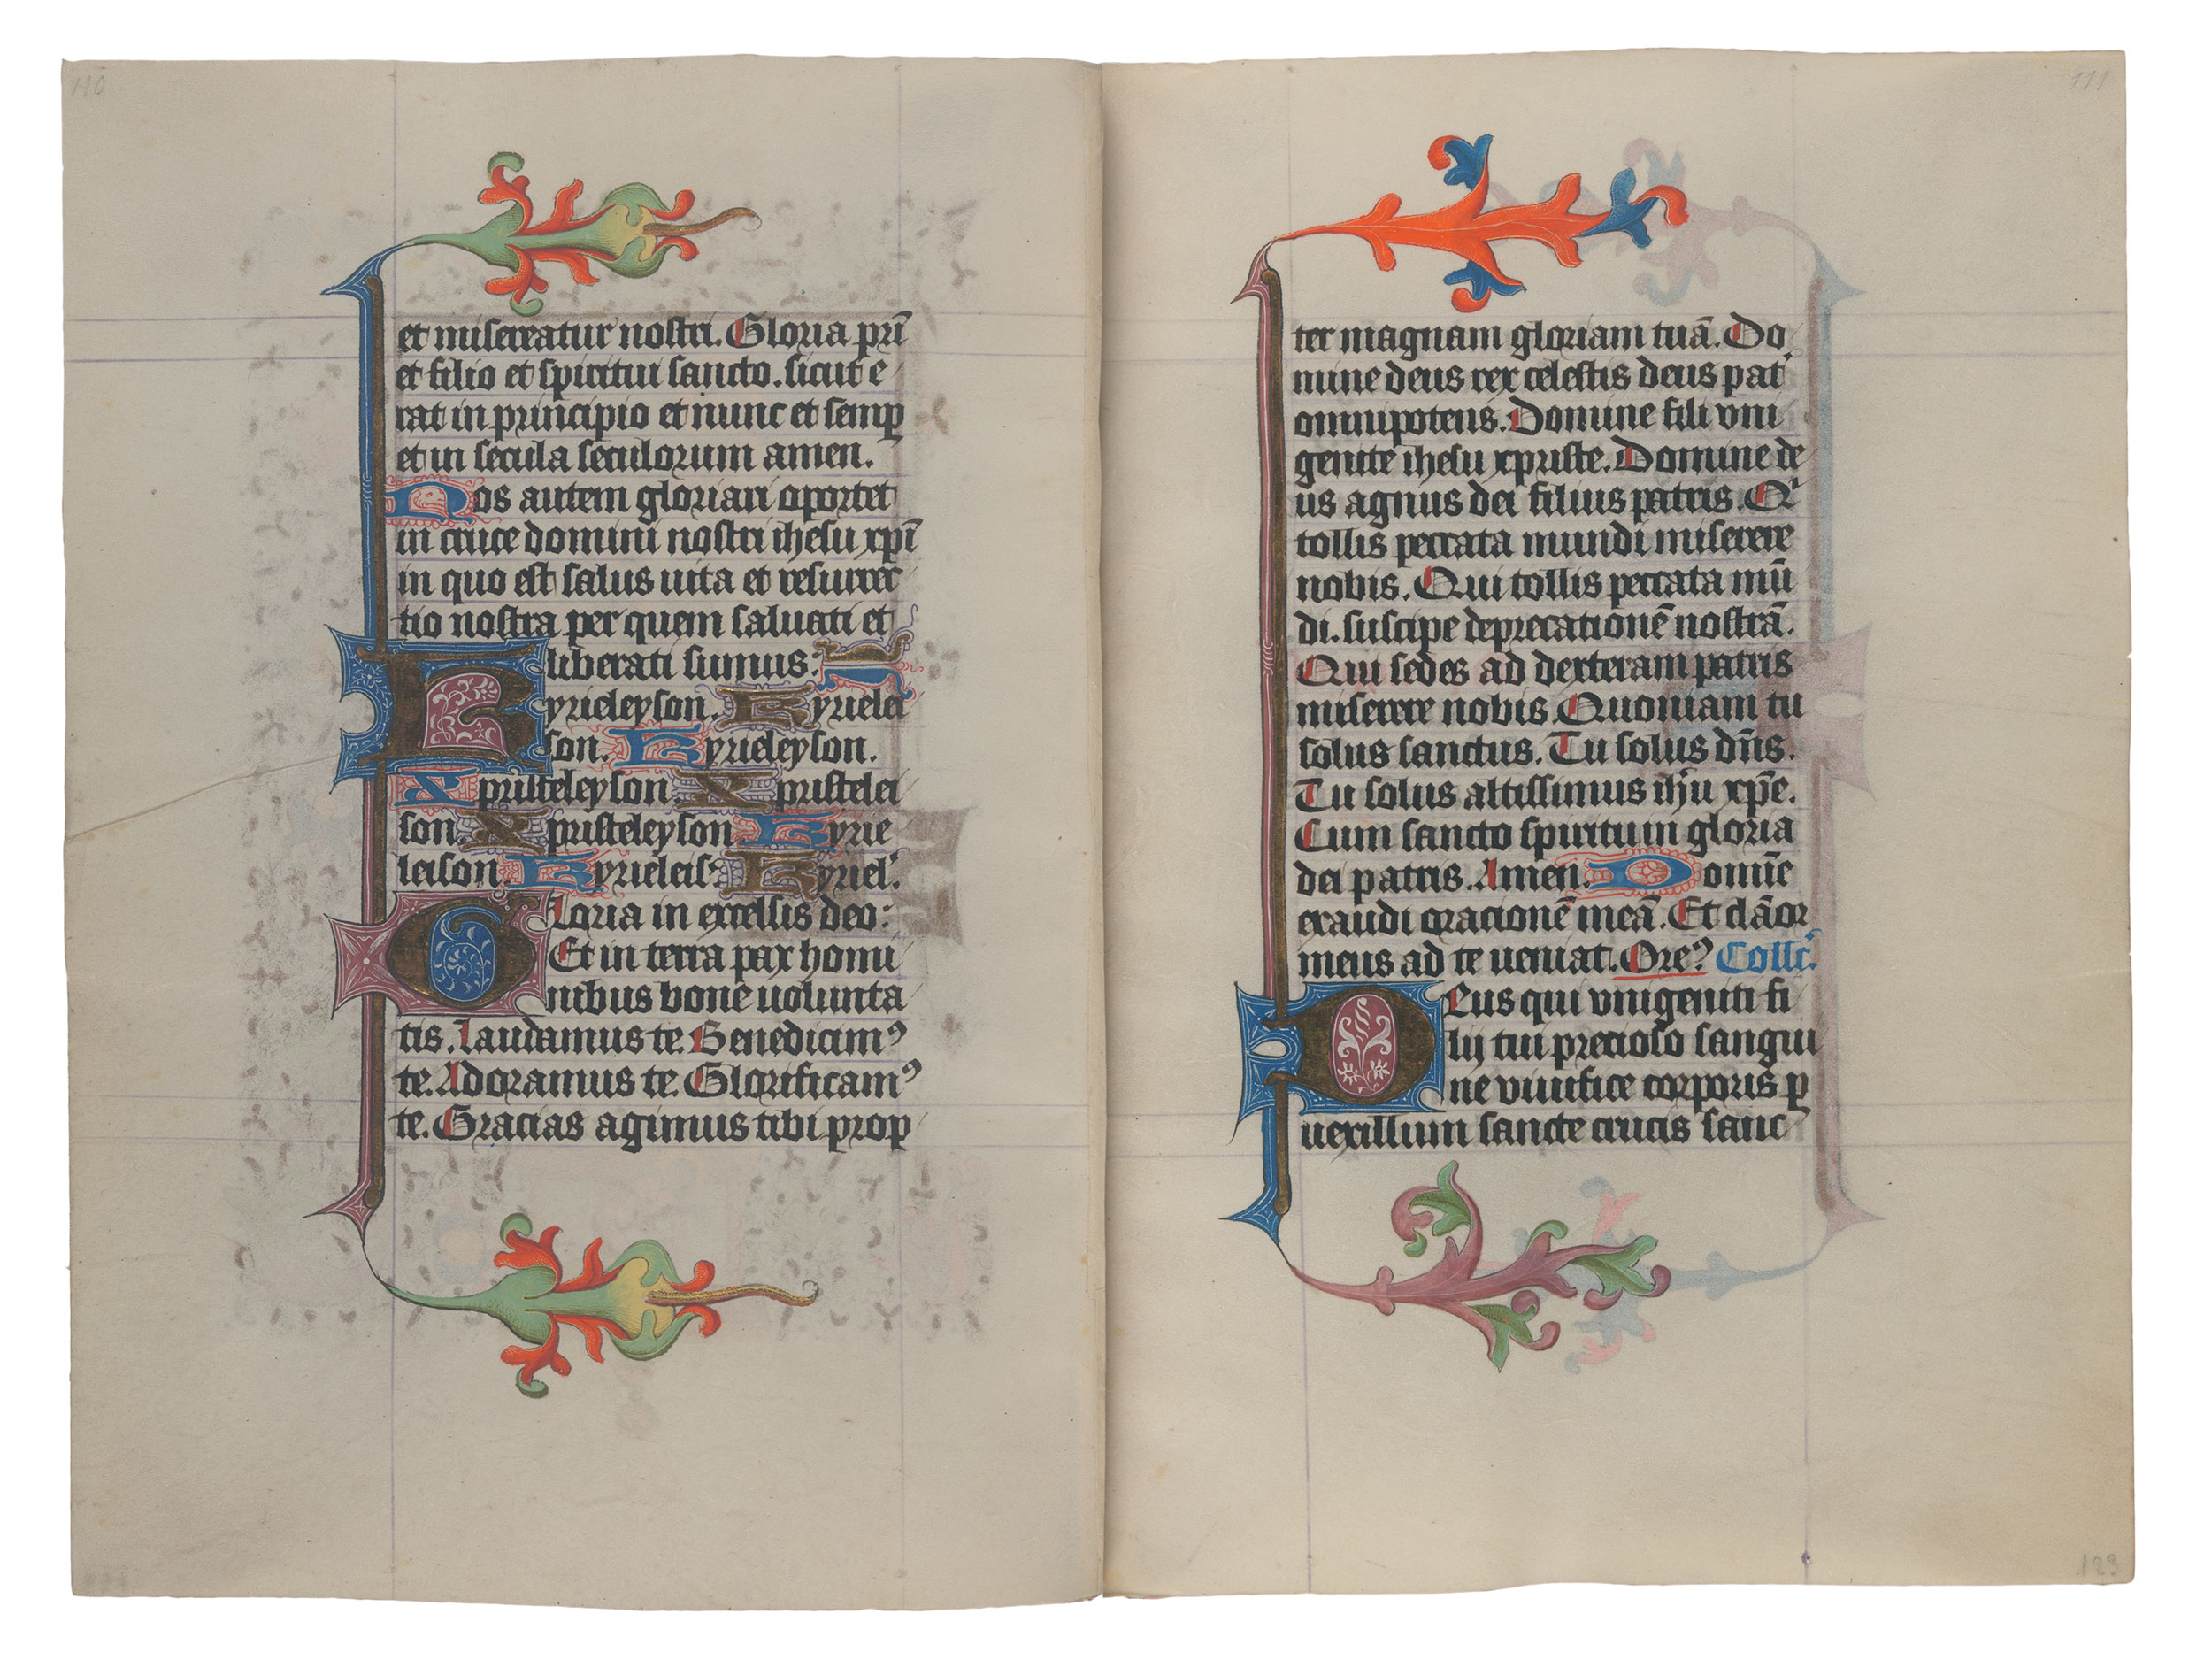 110
et misereatur nostri. Gloria pr̄i
et filio et spiritui sancto. sicut e
rat in principio et nunc et semꝑ
et in secula seculorum amen.
Nos autem gloriari oportet
in cruce domini nostri ihesu xp̄i
in quo est salus uita et resurrec
tio nostra per quem saluati et
liberati sumus:
Kyrieleyson. Kyrielei
son. Kyrieleyson.
Xpristeleyson. Xpristelei
son. Xpristeleyson Kyrie
leison. Kyrieleis. Kyriel.
Gloria in excelsis deo:
Et in terra pax homi
nibus bone uolunta
tis. Laudamus te. Benedicimꝰ
te. Adoramus te. Glorificamꝰ
te. Gracias agimus tibi prop
111
ter magnam gloriam tuā. Do
mine deus rex celestis deus pat
omnipotens. Domine fili vni
genite ihesu xpriste. Domine de
us agnus dei filius patris. Qi
tollis peccata mundi miserere
nobis. Qui tollis peccata mū
di. suscipe deprecationē nostrā.
Qui sedes ad dexteram patris
miserere nobis. Quoniam tu
solus sanctus. Tu solus dn̄s.
Tu solus altissimus ih̄u xp̄e.
Cum sancto spiritu in gloria
dei patris. Amen. Domīe
exaudi oracionē meā. Et clāor
meus ad te ueniat. Oreꝰ Collc̄.
Deus qui vnigeniti fi
lij tui precioso sangui
ne viuifice corporis ꝑ
uexillium sancte crucis sanc
123